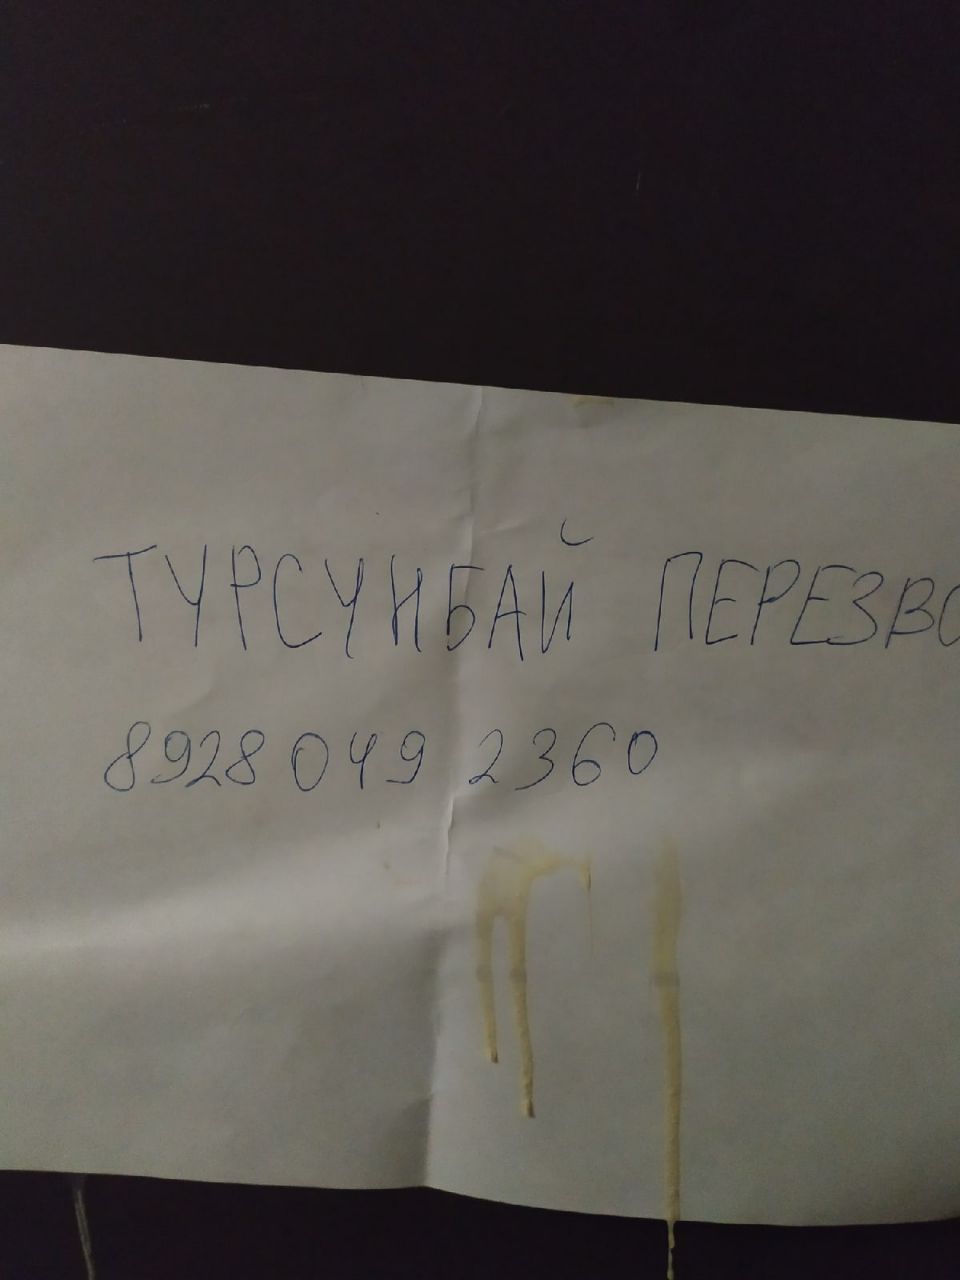 ТУРСУНБАЙ ПЕРЕЗВО
8928 049 2360